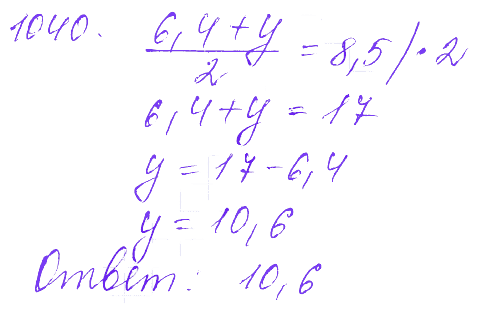 1040. (6,4+y)/2 = 8,5 / · 2
6,4+y = 17
y = 17-6,4
y = 10,6
Ответ: 10,6